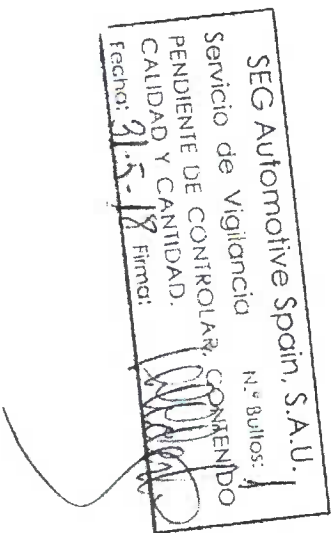 SEG Automotive Spain, S.A.U.
Servicio de Vigilancia N.º Bultos: 1
PENDIENTE DE CONTROLAR, CONTENIDO
CALIDAD Y CANTIDAD.
Fecha: 31-5-18 Firma: